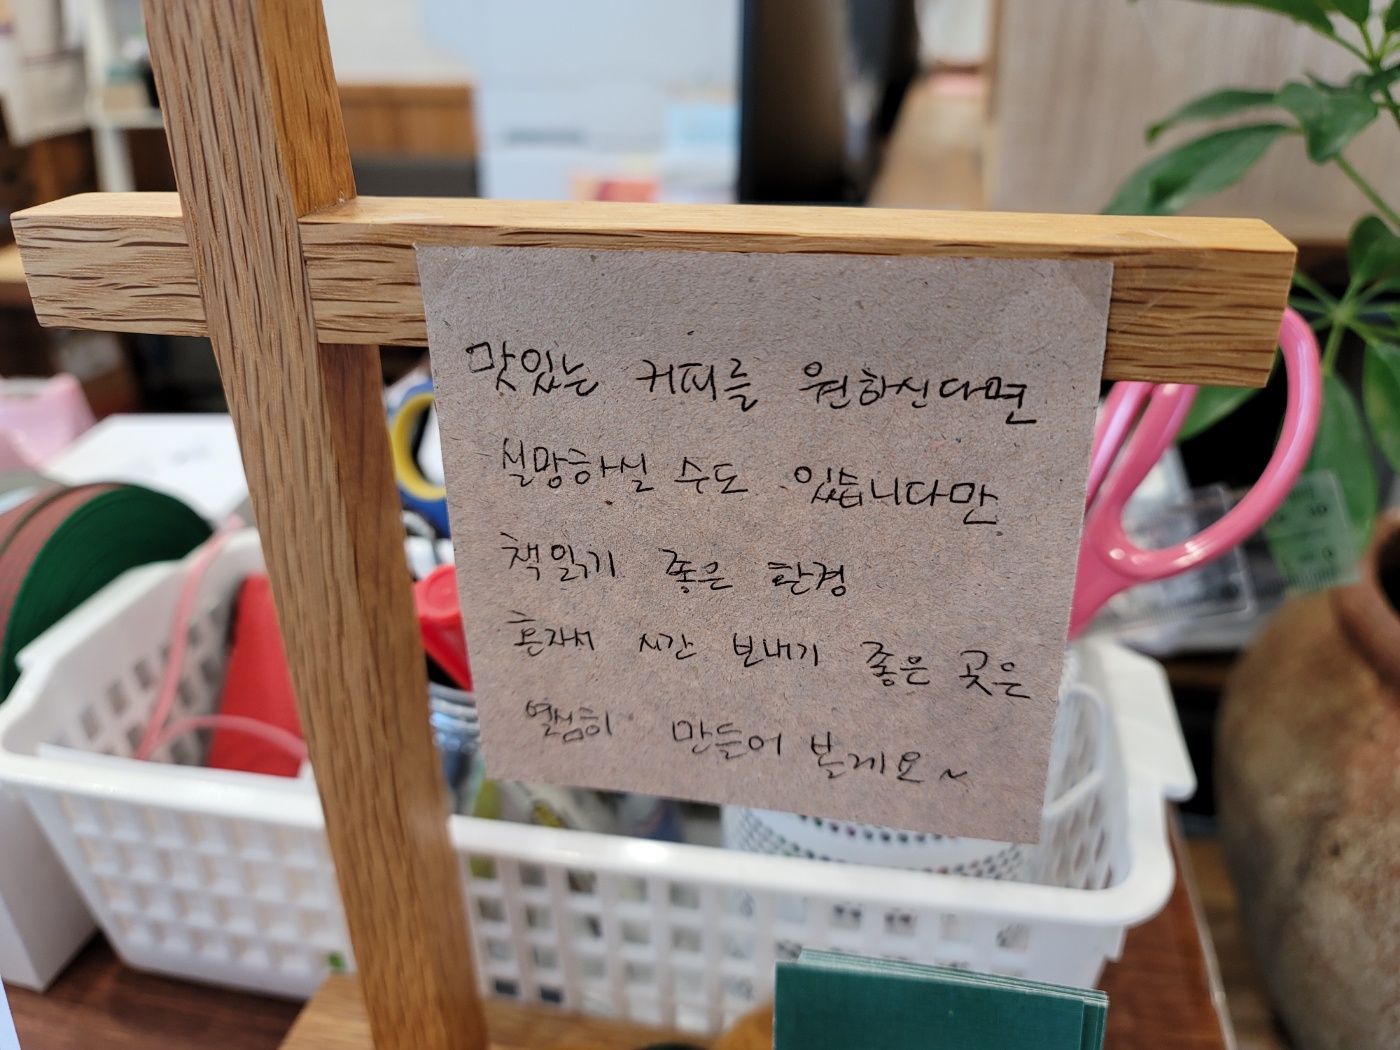 맛있는 커피를 원하신다면
실망하실 수도 있습니다만
책읽기 좋은 환경
혼자서 시간 보내기 좋은 곳은
열심히 만들어 볼게요~